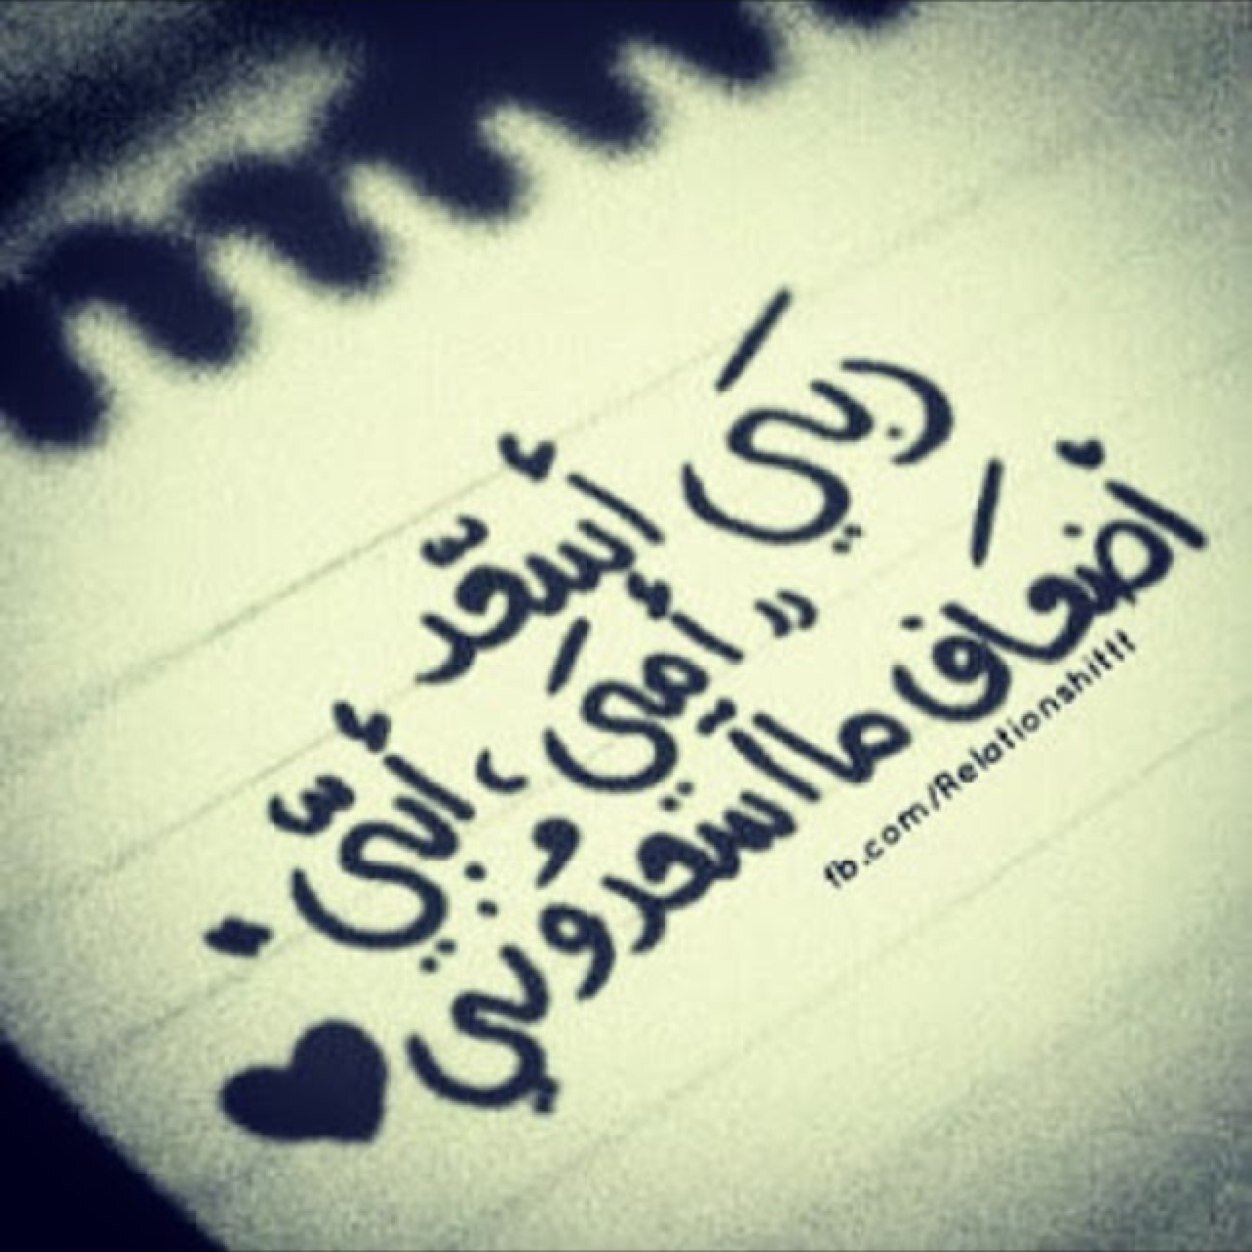 ربيَ أسعدّ
" أميَ ، و أبيّ "
أضعاف ما أسعدوني
fb.com/Relationshittt